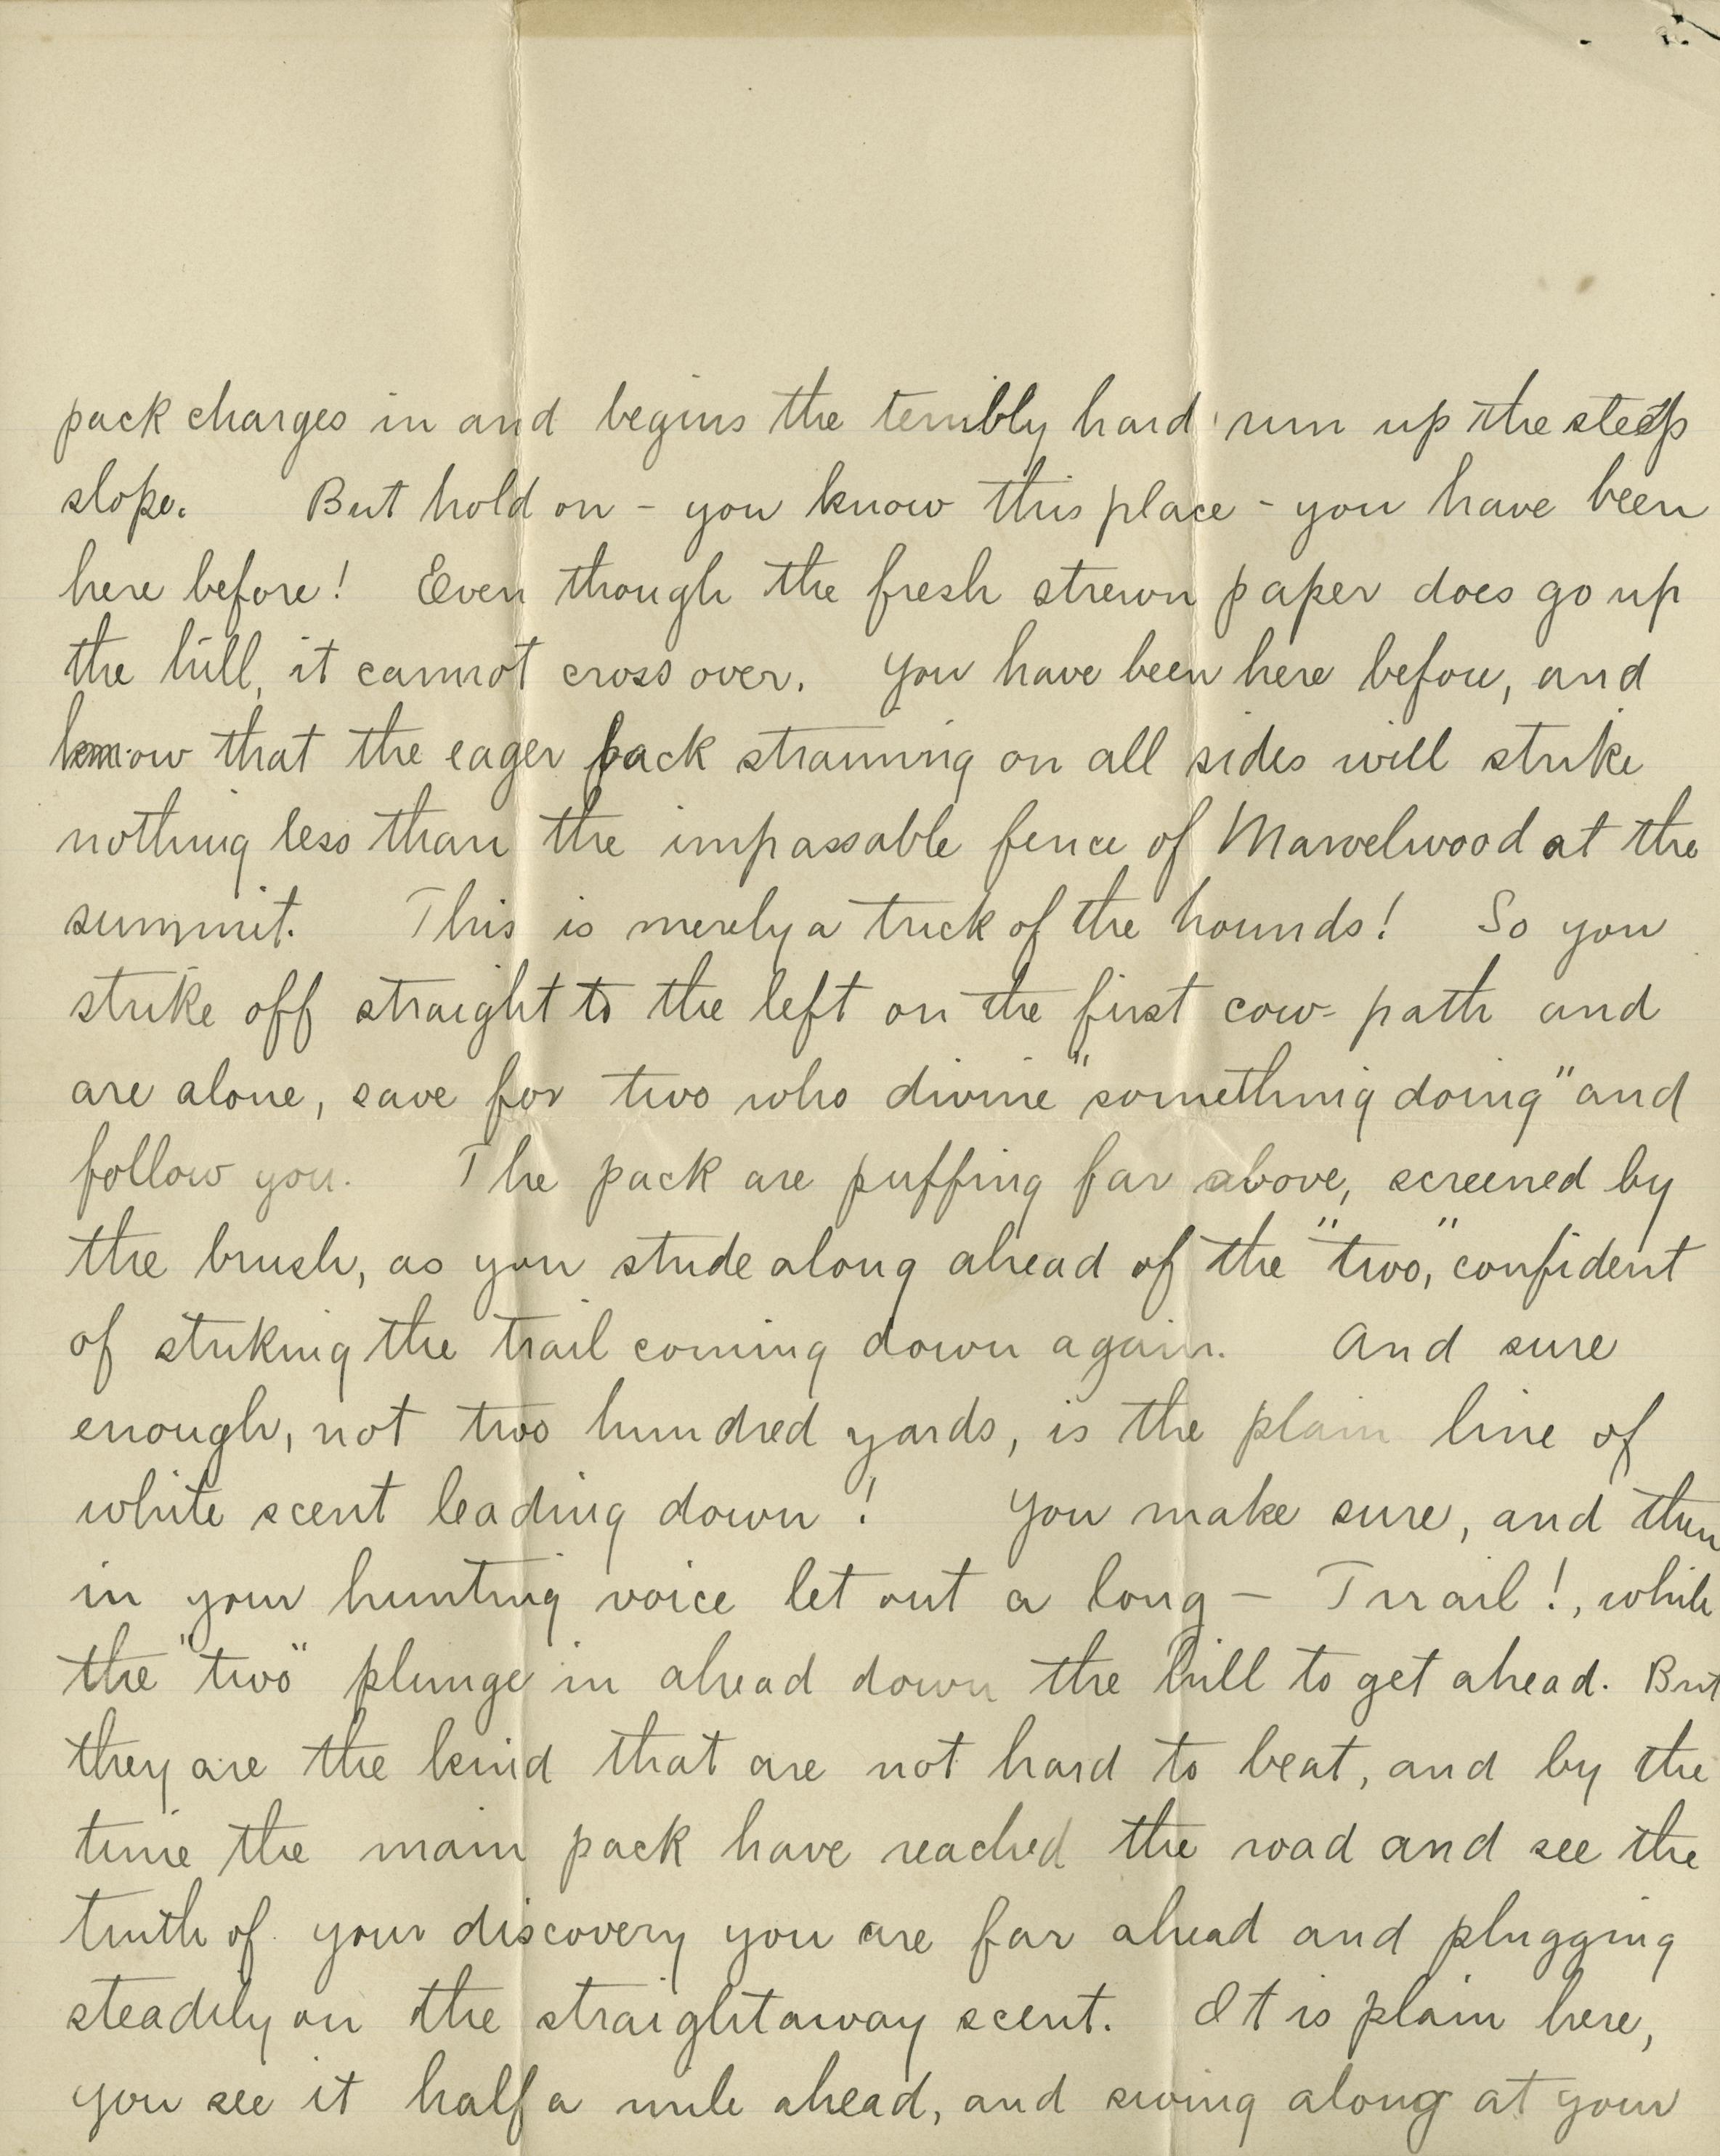 pack charges in and begins the terribly hard run up the steep
slope. But hold on - you know this place - you have been
here before! Even though the fresh strewn paper does go up
the hill, it cannot cross over. You have been here before, and
know that the eager pack straining on all sides will strike
nothing less than the impassable fence of Marvelwood at the
summit. This is merely a trick of the hounds! So you
strike off straight to the left on the first cow-path and
are alone, save for two who divine "something doing" and
follow you. The pack are puffing far above, screened by
the brush, as you stride along ahead of the "two," confident
of striking the trail coming down again. And sure
enough, not two hundred yards, is the plain line of
white scent leading down! You make sure, and then
in your hunting voice let out a long — Trrail!, while
the "two" plunge in ahead down the hill to get ahead. But
they are the kind that are not hard to beat, and by the
time the main pack have reached the road and see the
truth of your discovery you are far ahead and plugging
steadily on the straightaway scent. It is plain here,
you see it half a mile ahead, and swing along at your